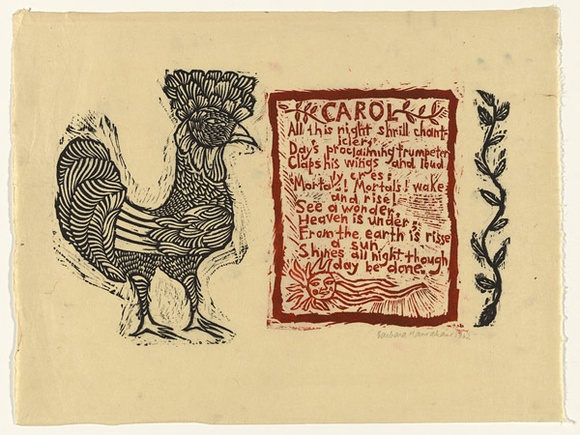 CAROL
All this night shrill chant-
iclere,
Day's proclaiming trumpeter
Claps his wings and loud
ly cries:
Mortals! Mortals! wake
and rise!
See a wonder,
Heaven is under;
From the earth is risse
a sun
Shines all night though
day be done.
Barbara Hanrahan 1962